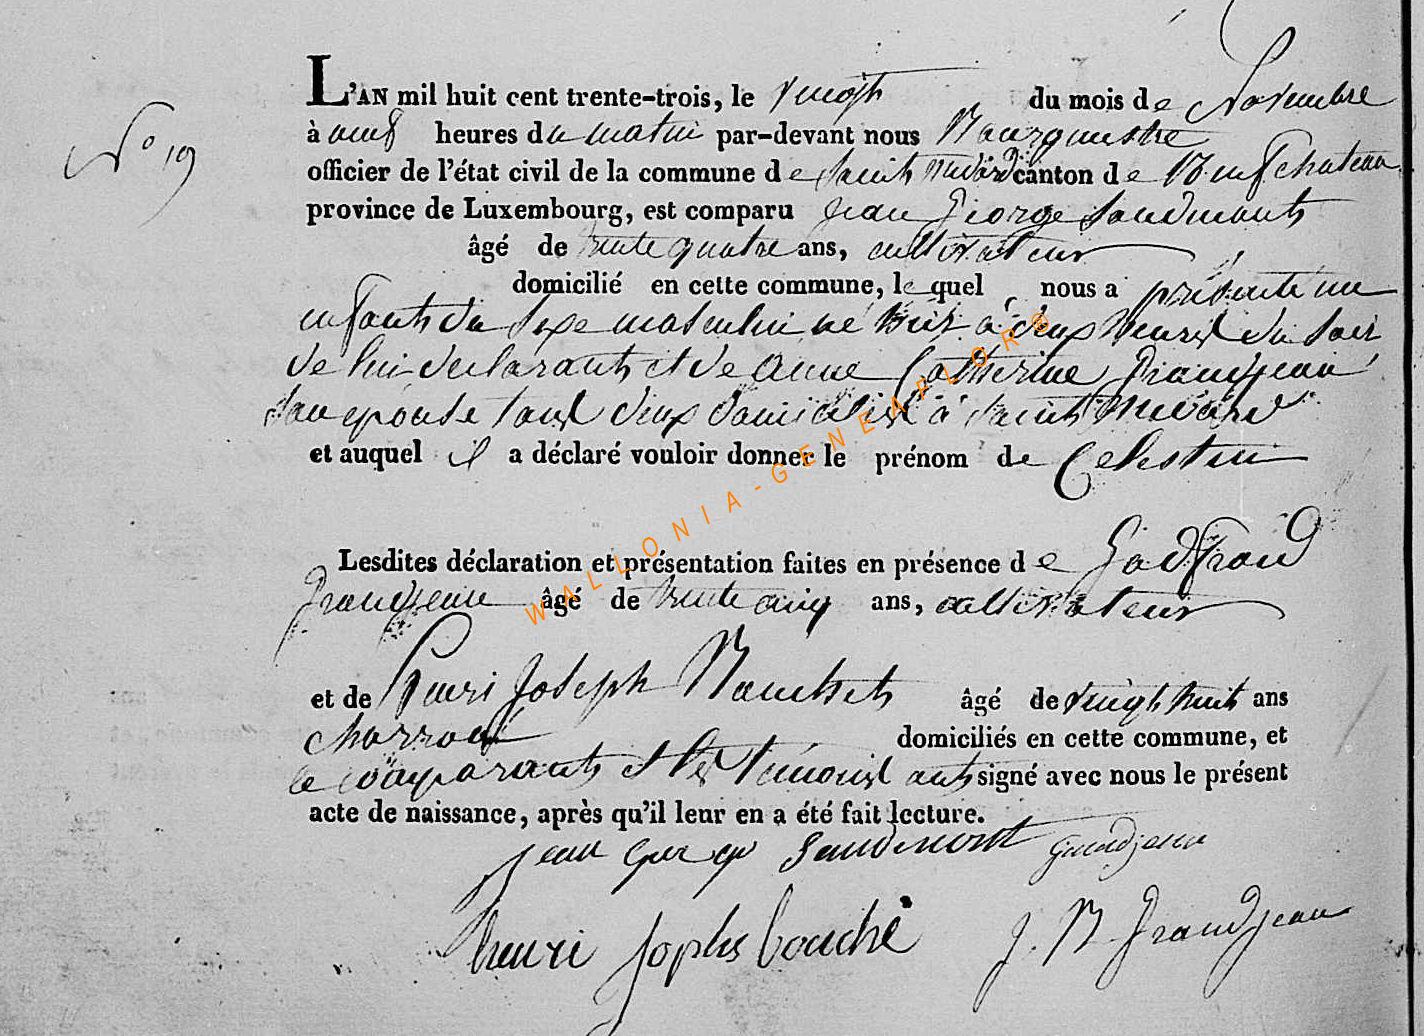 N° 19
L'AN mil huit cent trente-trois, le vingt du mois de Novembre
à neuf heures du matin par-devant nous Bourgmestre
officier de l'état civil de la commune de Saint Médard canton de Neufchateau
province de Luxembourg, est comparu Jean George Saudmont
âgé de trente quatre ans, cultivateur
domicilié en cette commune, le quel nous a présenté un
enfant du sexe masculin né hier à deux heures du soir
de lui déclarant et de Anne Catherine Grandjean
son epouse tous deux domicilies à Saint Médard
et auquel il a déclaré vouloir donner le prénom de Celestin
Lesdites déclaration et présentation faites en présence de Godfroid
Grandjean âgé de trente cinq ans, cultivateur
et de Henri Joseph âgé de vingt huit ans
charron domiciliés en cette commune, et
le comparant et les témoins ont signé avec nous le présent
acte de naissance, après qu'il leur en a été fait lecture.
jean Saudmont grandjean
henri bouché J. N. Grandjean
WALLONIA-GENEAFLOR®